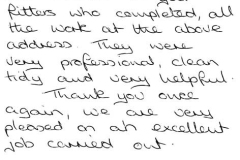 fitters who completed, all
the work at the above
address. They were
very professional, clean
tidy and very helpful.
Thank you once
again, we are very
pleased on an excellent
job carried out.